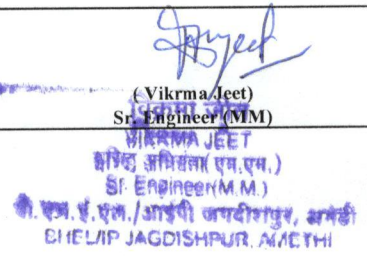 ( Vikrma Jeet)
Sr. Engineer (MM)
विक्रमा जीत
VIKRMA JEET
वरिष्ठ अभियंता (एम.एम.)
Sr. Engineer(M.M.)
बी.एच.ई.एल./आईपी जगदीशपुर, अमेठी
BHEL/IP JAGDISHPUR, AMETHI